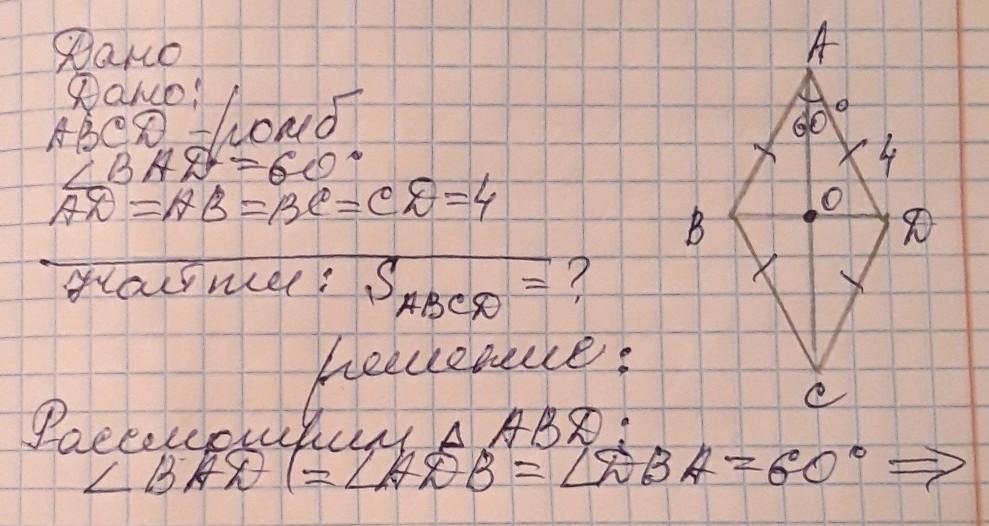 Дано
Дано:
ABCD - ромб
∠BAD = 60°
AD = AB = BC = CD = 4
Найти: S_ABCD = ?
решение:
Рассмотрим △ ABD:
∠BAD = ∠ADB = ∠DBA = 60° ⇒
A
60°
4
B
O
D
C